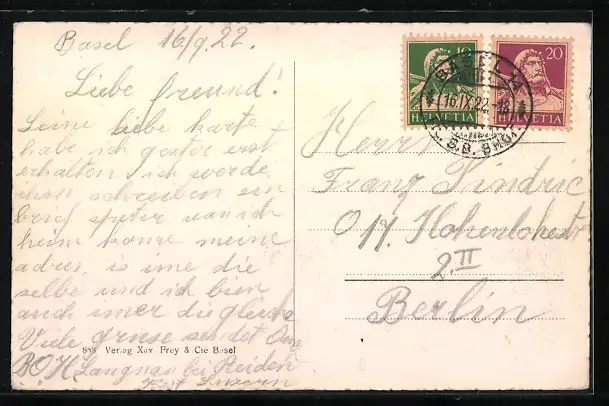 Basel 16/9.22.
Liebe freund!
Deine liebe karte
habe ich gester erst
erhalten ich werde
ihm schreiben ein
brief speter wan ich
heim kome meine
adres is ime die
selbe und ich bien
auch imer die gleiche
Viele gruse sendet
B.O.H. Langnau bei Reiden
Kt Luzern
888 Verlag Xav. Frey & Cie Basel
10 20
HELVETIA HELVETIA
BASEL
16.IX.22.-18
Herrn
Franz
O 17. Hohenlohestr
2.II
Berlin